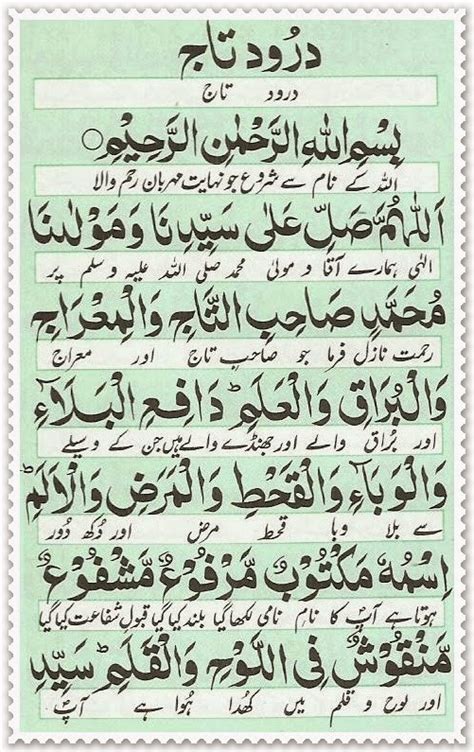 درود تاج
درود تاج
بِسْمِ اللهِ الرَّحْمٰنِ الرَّحِيْمِ
اللہ کے نام سے شروع جو نہایت مہربان رحم والا
اَللّٰهُمَّ صَلِّ عَلٰى سَيِّدِنَا وَمَوْلٰىنَا
الٰہی ہمارے آقا و مولیٰ محمد صلی اللہ علیہ وسلم پر
مُحَمَّدٍ صَاحِبِ التَّاجِ وَالْمِعْرَاجِ
رحمت نازل فرما جو صاحبِ تاج اور معراج
وَالْبُرَاقِ وَالْعَلَمِ ؕ دَافِعِ الْبَلَاءِ
اور بُراق والے اور جھنڈے والے ہیں جن کے وسیلے
وَالْوَبَاءِ وَالْقَحْطِ وَالْمَرَضِ وَالْاَلَمِ ؕ
سے بلا وبا قحط مرض اور دُکھ دُور
اِسْمُهٗ مَكْتُوْبٌ مَّرْفُوْعٌ مَّشْفُوْعٌ
ہوتا ہے آپ کا نام نامی لکھا گیا بلند کیا گیا قبول شفاعت کیا گیا
مَّنْقُوْشٌ فِى اللَّوْحِ وَالْقَلَمِ ؕ سَيِّدِ
اور لوح و قلم میں کھدا ہوا ہے آپ